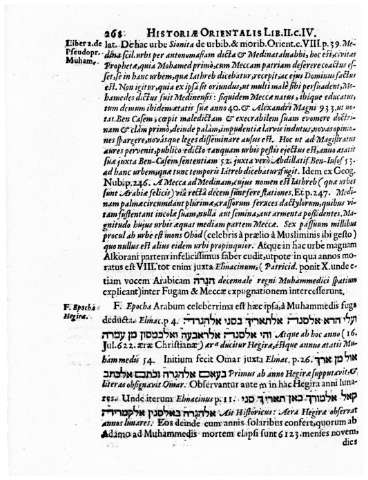 268 HISTORIÆ ORIENTALIS LIB. II. C. IV.
Liber 2. de
Pseudopr.
Muham.
lat. De hac urbe Sionita de urbib. & morib. Orient. c. VIII. p. 39. Me-
dina scil. urbs per antonomasiam dicta & Medinat alnabbi, hoc est, civitas
Prophetæ, quia Mohamed primò, cum Meccam patriam deserere coactus es-
set, se in hanc urbem, quæ Iathreb dicebatur, recepit, ac ejus Dominus factus
est. Non igitur, quia ex ipsa sit oriundus, ut multi malè sibi persuadent, Mo-
hamedes dictus fuit Medinensis: siquidem Meccæ natus, ibique educatus,
tum demum ibidem ætatis suæ anno 40. & Alexandri Magni 933. ut no-
tat Ben Casem, cœpit maledictam & execrabilem suam evomere doctri-
nam & clam primò, deinde palam, impudentiæ larvis indutus, novas opinio-
nes spargere, novásque leges disseminare ausus est. Hoc ut ad Magistratus
aures pervenit, publico edicto tanquam urbis pestis ejectus est, anno ætatis
suæ juxta Ben-Casem sententiam 52. juxta verò Abdillatif Ben-Iusof 53.
ad hanc urbem, quæ tunc temporis Iathreb dicebatur fugit. Idem ex Geog.
Nubip. 246. A Mecca ad Medinam, cujus nomen est Iathreb (quæ urbes
sunt Arabiæ felicis) viâ rectâ decem sunt ferè stationes, Et p. 247. Medi-
nam palmæ circumdant plurimæ, crassorum feraces dactylorum, quibus vi-
tam sustentant incolæ suam, nulla aut semina, aut armenta possidentes. Ma-
gnitudo hujus urbis æquat mediam partem Meccæ. Sex passuum millibus
procul ab urbe est mons Ohod (celebris à prælio à Muslimis ibi gesto)
quo nullus est alius eidem urbi propinquior. Atque in hac urbe magnam
Alkorani partem infelicissimus faber cudit, utpote in qua annos mo-
ratus est VIII. tot enim juxta Elmacinum, (Patricid. ponit X. unde e-
tiam vocem Arabicam הגרה decennale regni Muhammedici spatium
explicant) inter Fugam & Meccæ expugnationem intercesserunt.
F. Epocha
Hegiræ.
F. Epocha Arabum celeberrima est hæc ipsa, à Muhammedis fuga
Jul. 622. æræ Christianæ) æra ducitur Hegiræ, éstque annus ætatis Mu-
hammedis 54. Initium fecit Omar juxta Elmac. p. 26.
literas obsignavit Omar. Observantur autem in hac Hegira anni luna-
annos lunares: Eos deinde cum annis solaribus confert, quorum ab
Adamo ad Muhammedis mortem elapsi sunt 6123. menses novem,
dies